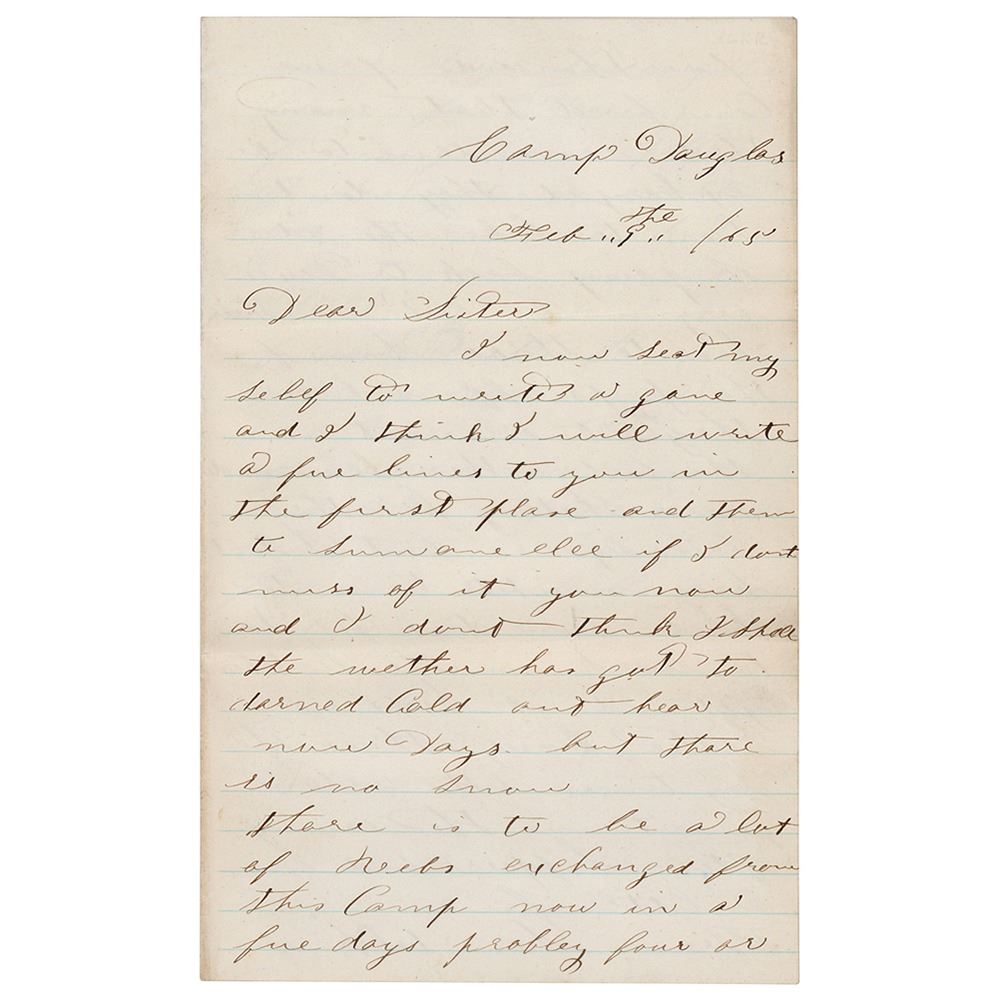 Camp Douglas
Feb "9the" /65
Dear Sister
I now seat my
self to write a gane
and I think I will write
a fue lines to you in
the first plase and them
to sum one else if I dont
miss of it you now
and I dont think I shall
the wether has got to
darned Cold out hear
now Days. but thare
is no snow
thare is to be a lot
of Rebs exchanged from
this Camp now in a
fue days probley four or